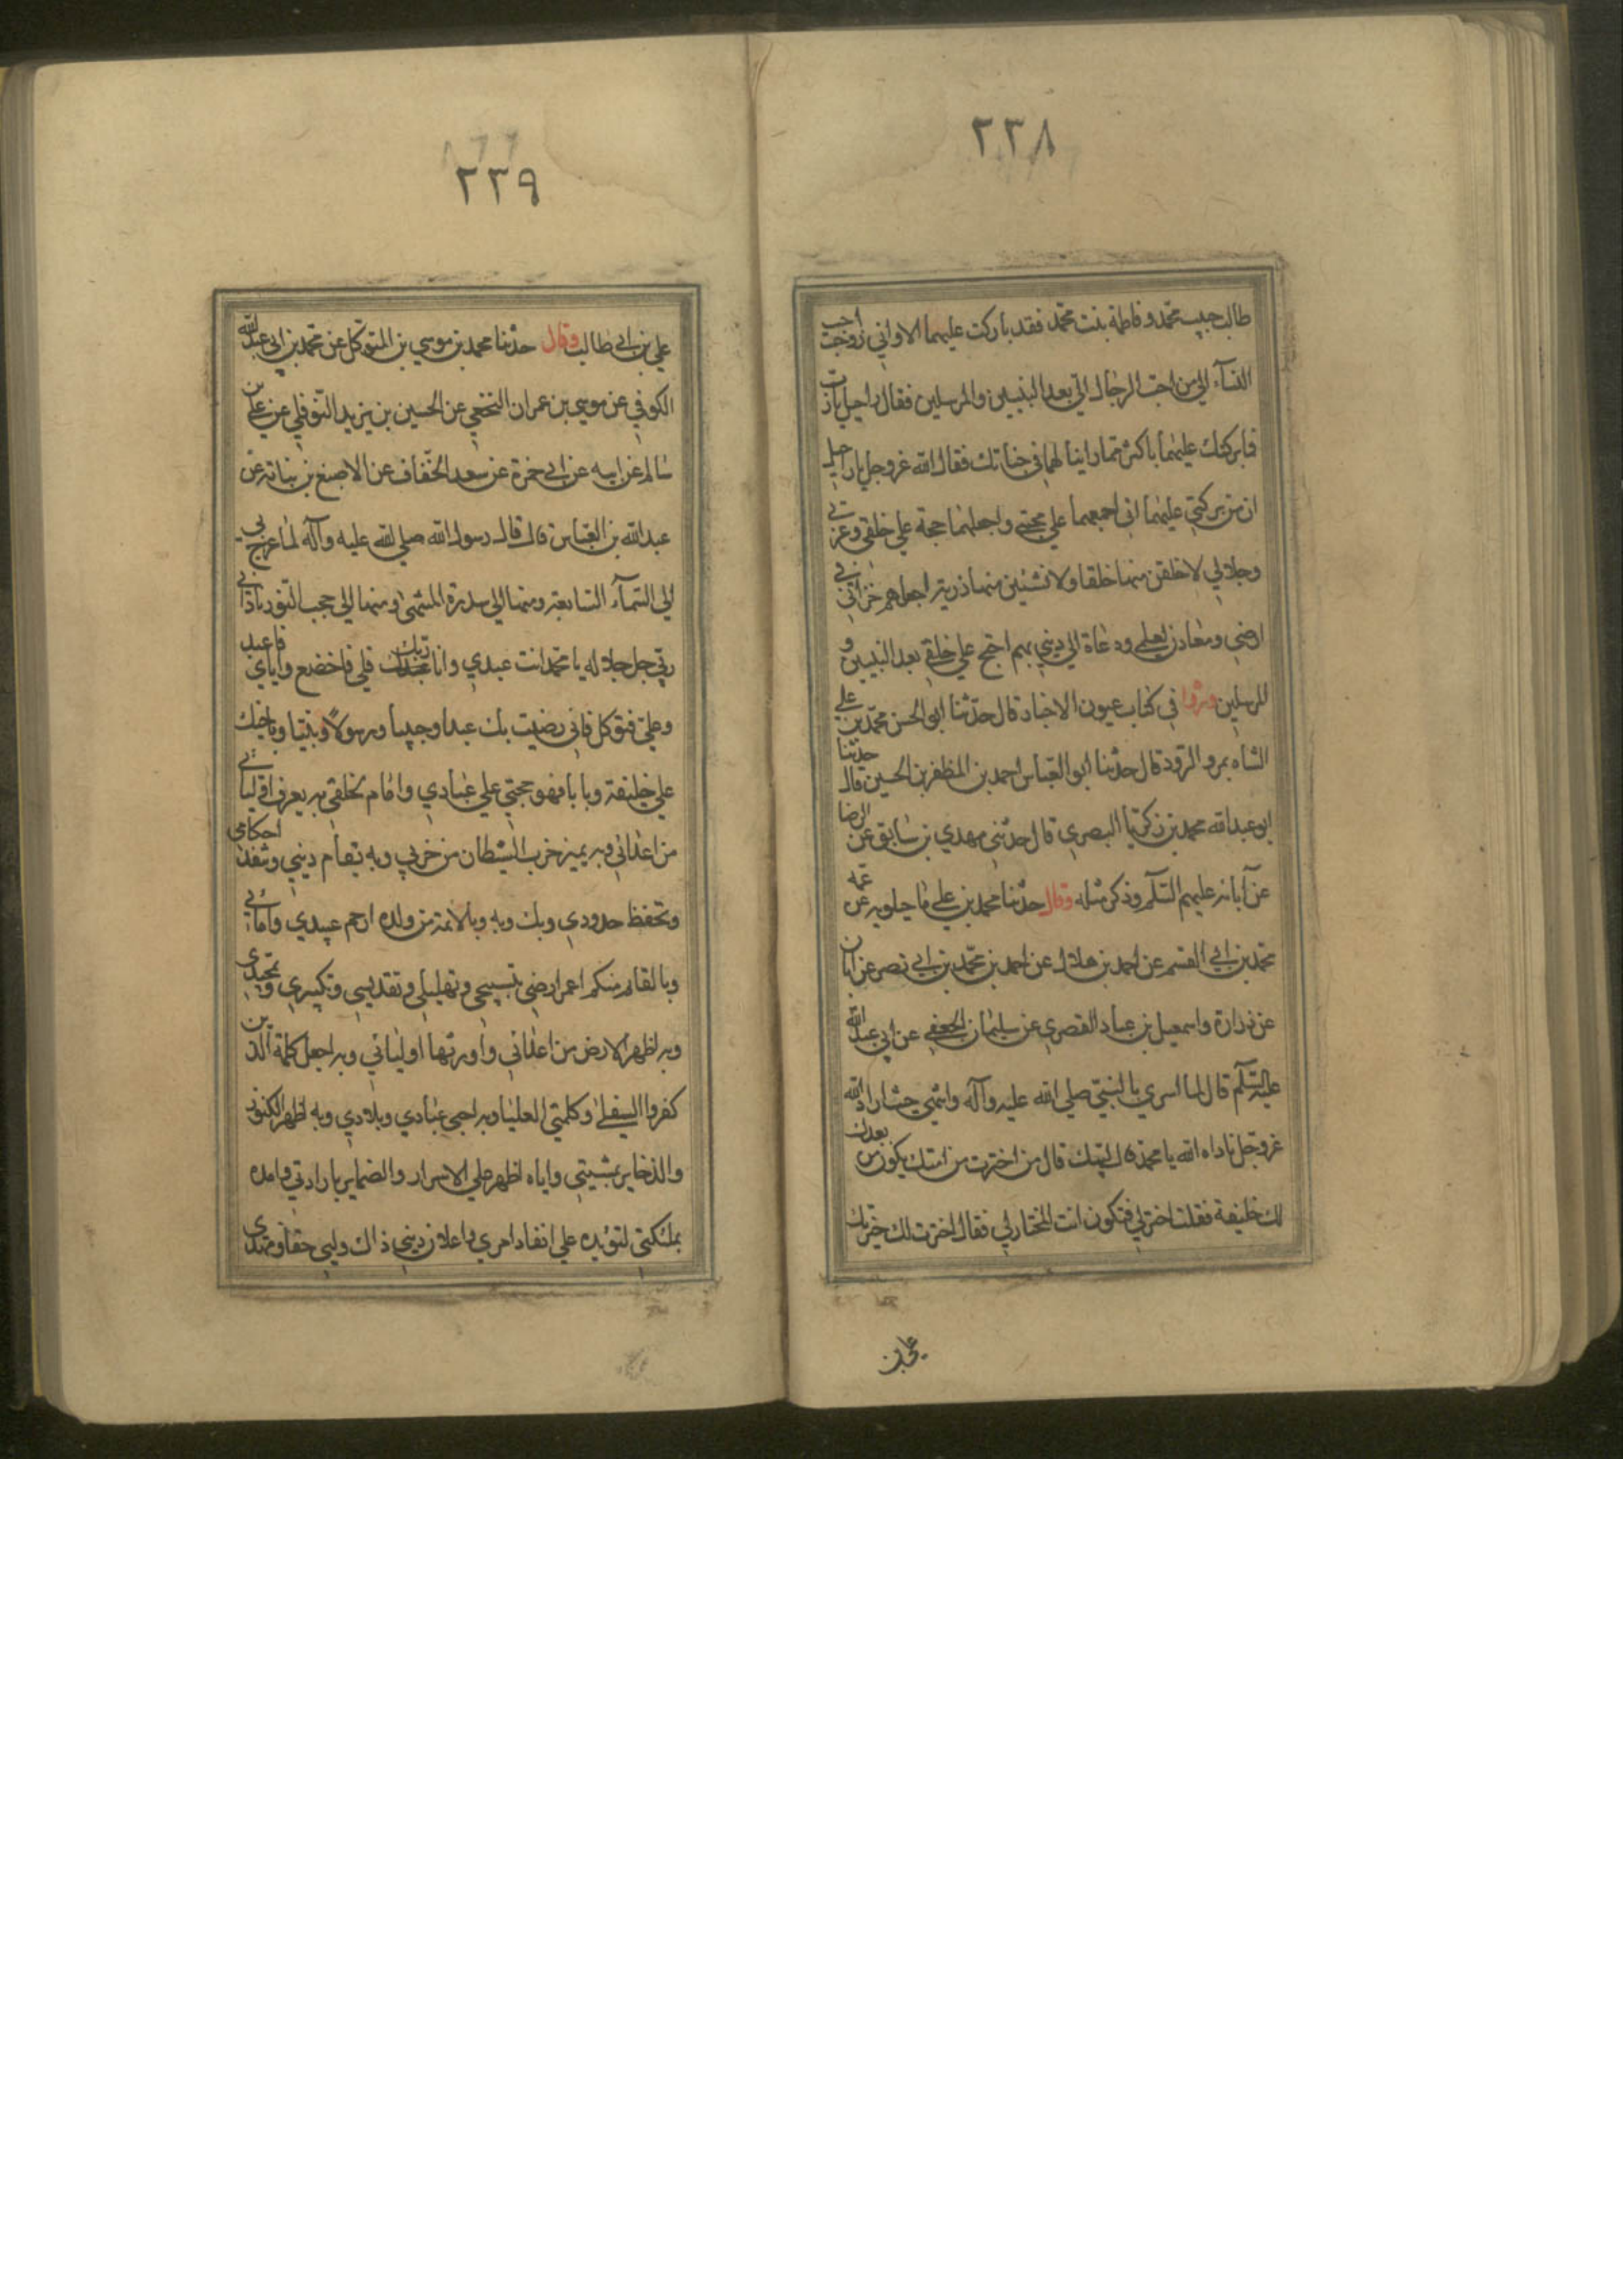 ٢٣٨
طالب حبيب محمد وفاطمة بنت محمد فقد باركت عليهما الا واني زوجت احب
النساء الي من احب الرجال الي بعد النبيين والمرسلين فقال راحيل يا رب
فما بركتك عليهما باكثر مما راينا لهما في جناتك فقال الله عز وجل يا راحيل
ان من بركتي عليهما اني اجمعهما علي محبتي واجعلهما حجة علي خلقي وعزتي
وجلالي لاخلقن منهما خلقا ولانشئن منهما ذرية اجعلهم خزاني في
ارضي ومعادن لعلمي ودعاة الي ديني بهم احتج علي خلقي بعد النبيين و
المرسلين وروا في كتاب عيون الاخبار قال حدثنا ابو الحسن محمد بن علي
الشاه بمرو الرود قال حدثنا ابو العباس احمد بن المظفر بن الحسين قال حدثنا
ابو عبدالله محمد بن زكريا البصري قال حدثني مهدي بن سابق عن الرضا
عن آبائه عليهم السلم وذكر مثله وقال حدثنا محمد بن علي ماجيلويه عن عمه
محمد بن ابي القسم عن احمد بن هلال عن احمد بن محمد بن ابي نصر عن ابان
عن زرارة واسمعيل بن عباد القصري عن سليمان الجعفي عن ابي عبد الله
عليه السلم قال لما اسري بالنبي صلي الله عليه وآله وانتهي حيث اراد الله
عز وجل ناداه الله يا محمد قال لبيك قال من اخترت من امتك يكون من بعدك
لك خليفة فقلت اختر لي فتكون انت المختار لي فقال اخترت لك خيرتك
علي بن
٢٣٩
علي بن ابي طالب وقال حدثنا محمد بن موسي بن المتوكل عن محمد بن ابي عبد الله
الكوفي عن موسي بن عمران النخعي عن الحسين بن يزيد النوفلي عن علي بن
سالم عن ابيه عن ابي حمزة عن سعد الخفاف عن الاصبغ بن نباتة عن
عبدالله بن العباس قال قال رسول الله صلي الله عليه وآله لما عرج بي
الي السماء السابعة ومنها الي سدرة المنتهي ومنها الي حجب النور ناداني
ربي جل جلاله يا محمد انت عبدي وانا ربك فلي فاخضع واياي فاعبد
وعلي فتوكل فاني رضيت بك عبدا وحبيبا ورسولا ونبيا وباخيك
علي خليفة وبابا فهو حجتي علي عبادي وامام لخلقي به يعرف اوليائي
من اعدائي وبه يميز حزب الشيطان من حزبي وبه يقام ديني وتنفذ احكامي
وتحفظ حدودي وبك وبه وبالائمة من ولده ارحم عبيدي وامائي
وبالقائم منكم اعمر ارضي بتسبيحي وتهليلي وتقديسي وتكبيري وتمجيدي
وبه اظهر الارض من اعدائي واورثها اوليائي وبه اجعل كلمة الذين
كفروا السفلي وكلمتي العليا وبه احيي عبادي وبلادي وبه اظهر الكنوز
والذخاير بمشيتي واياه اظهر علي الاسرار والضماير بارادتي وامده
بملئكتي لتؤيده علي انفاذ امري واعلان ديني ذاك وليي حقا ومهدي